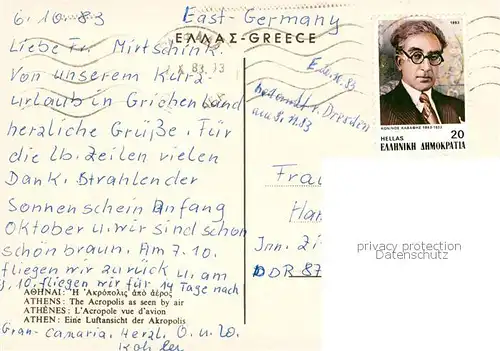 6. 10. 83
East-Germany
ΕΛΛΑΣ-GREECE
Liebe Fr. Mirtschink.
Von unserem Kurz-
urlaub in Grichenland
herzliche Grüße. Für
die lb. Zeilen vielen
Dank. Strahlender
Sonnenschein Anfang
Oktober u. wir sind schon
schön braun. Am 7. 10.
fliegen wir zurück u. am
10. fliegen wir für 14 Tage nach
ΑΘΗΝΑΙ: Ἡ Ἀκρόπολις ἀπό ἀέρος
ATHENS: The Acropolis as seen by air
ATHÈNES: L'Acropole vue d'avion
ATHEN: Eine Luftansicht der Akropolis
Gran-Canaria. Herzl. G. u. W.
1983
ΚΩΝ/ΝΟΣ ΚΑΒΑΦΗΣ 1863-1933
HELLAS 20
ΕΛΛΗΝΙΚΗ ΔΗΜΟΚΡΑΤΙΑ
83
v. Dresden
Frau
Inn. Zi
DDR 87
privacy protection
Datenschutz